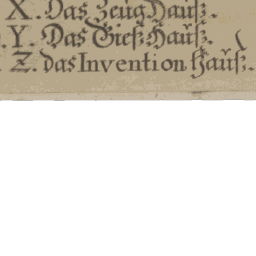 X. Das Zeüg Hauß.
Y. Das Gieß Hauß.
Z. das Invention Hauß.